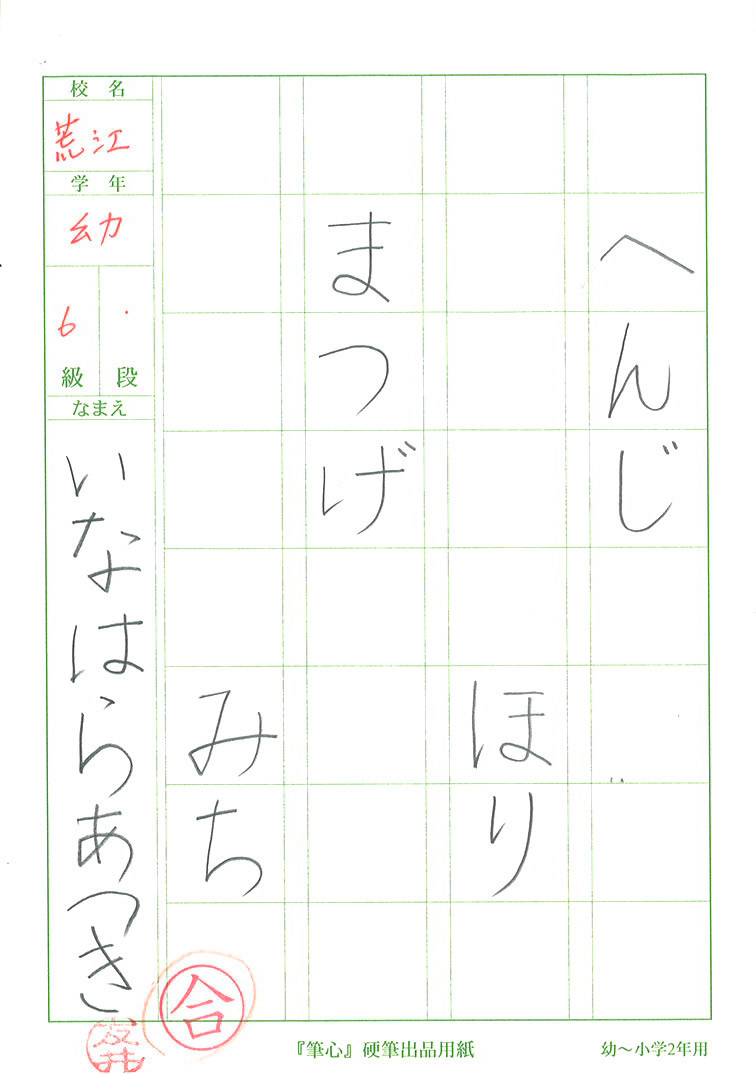 へんじ
ほり
まつげ
みち
校名
荒江
学年
幼
6級
・段
なまえ
いなはらあつき
合
『筆心』硬筆出品用紙
幼～小学2年用